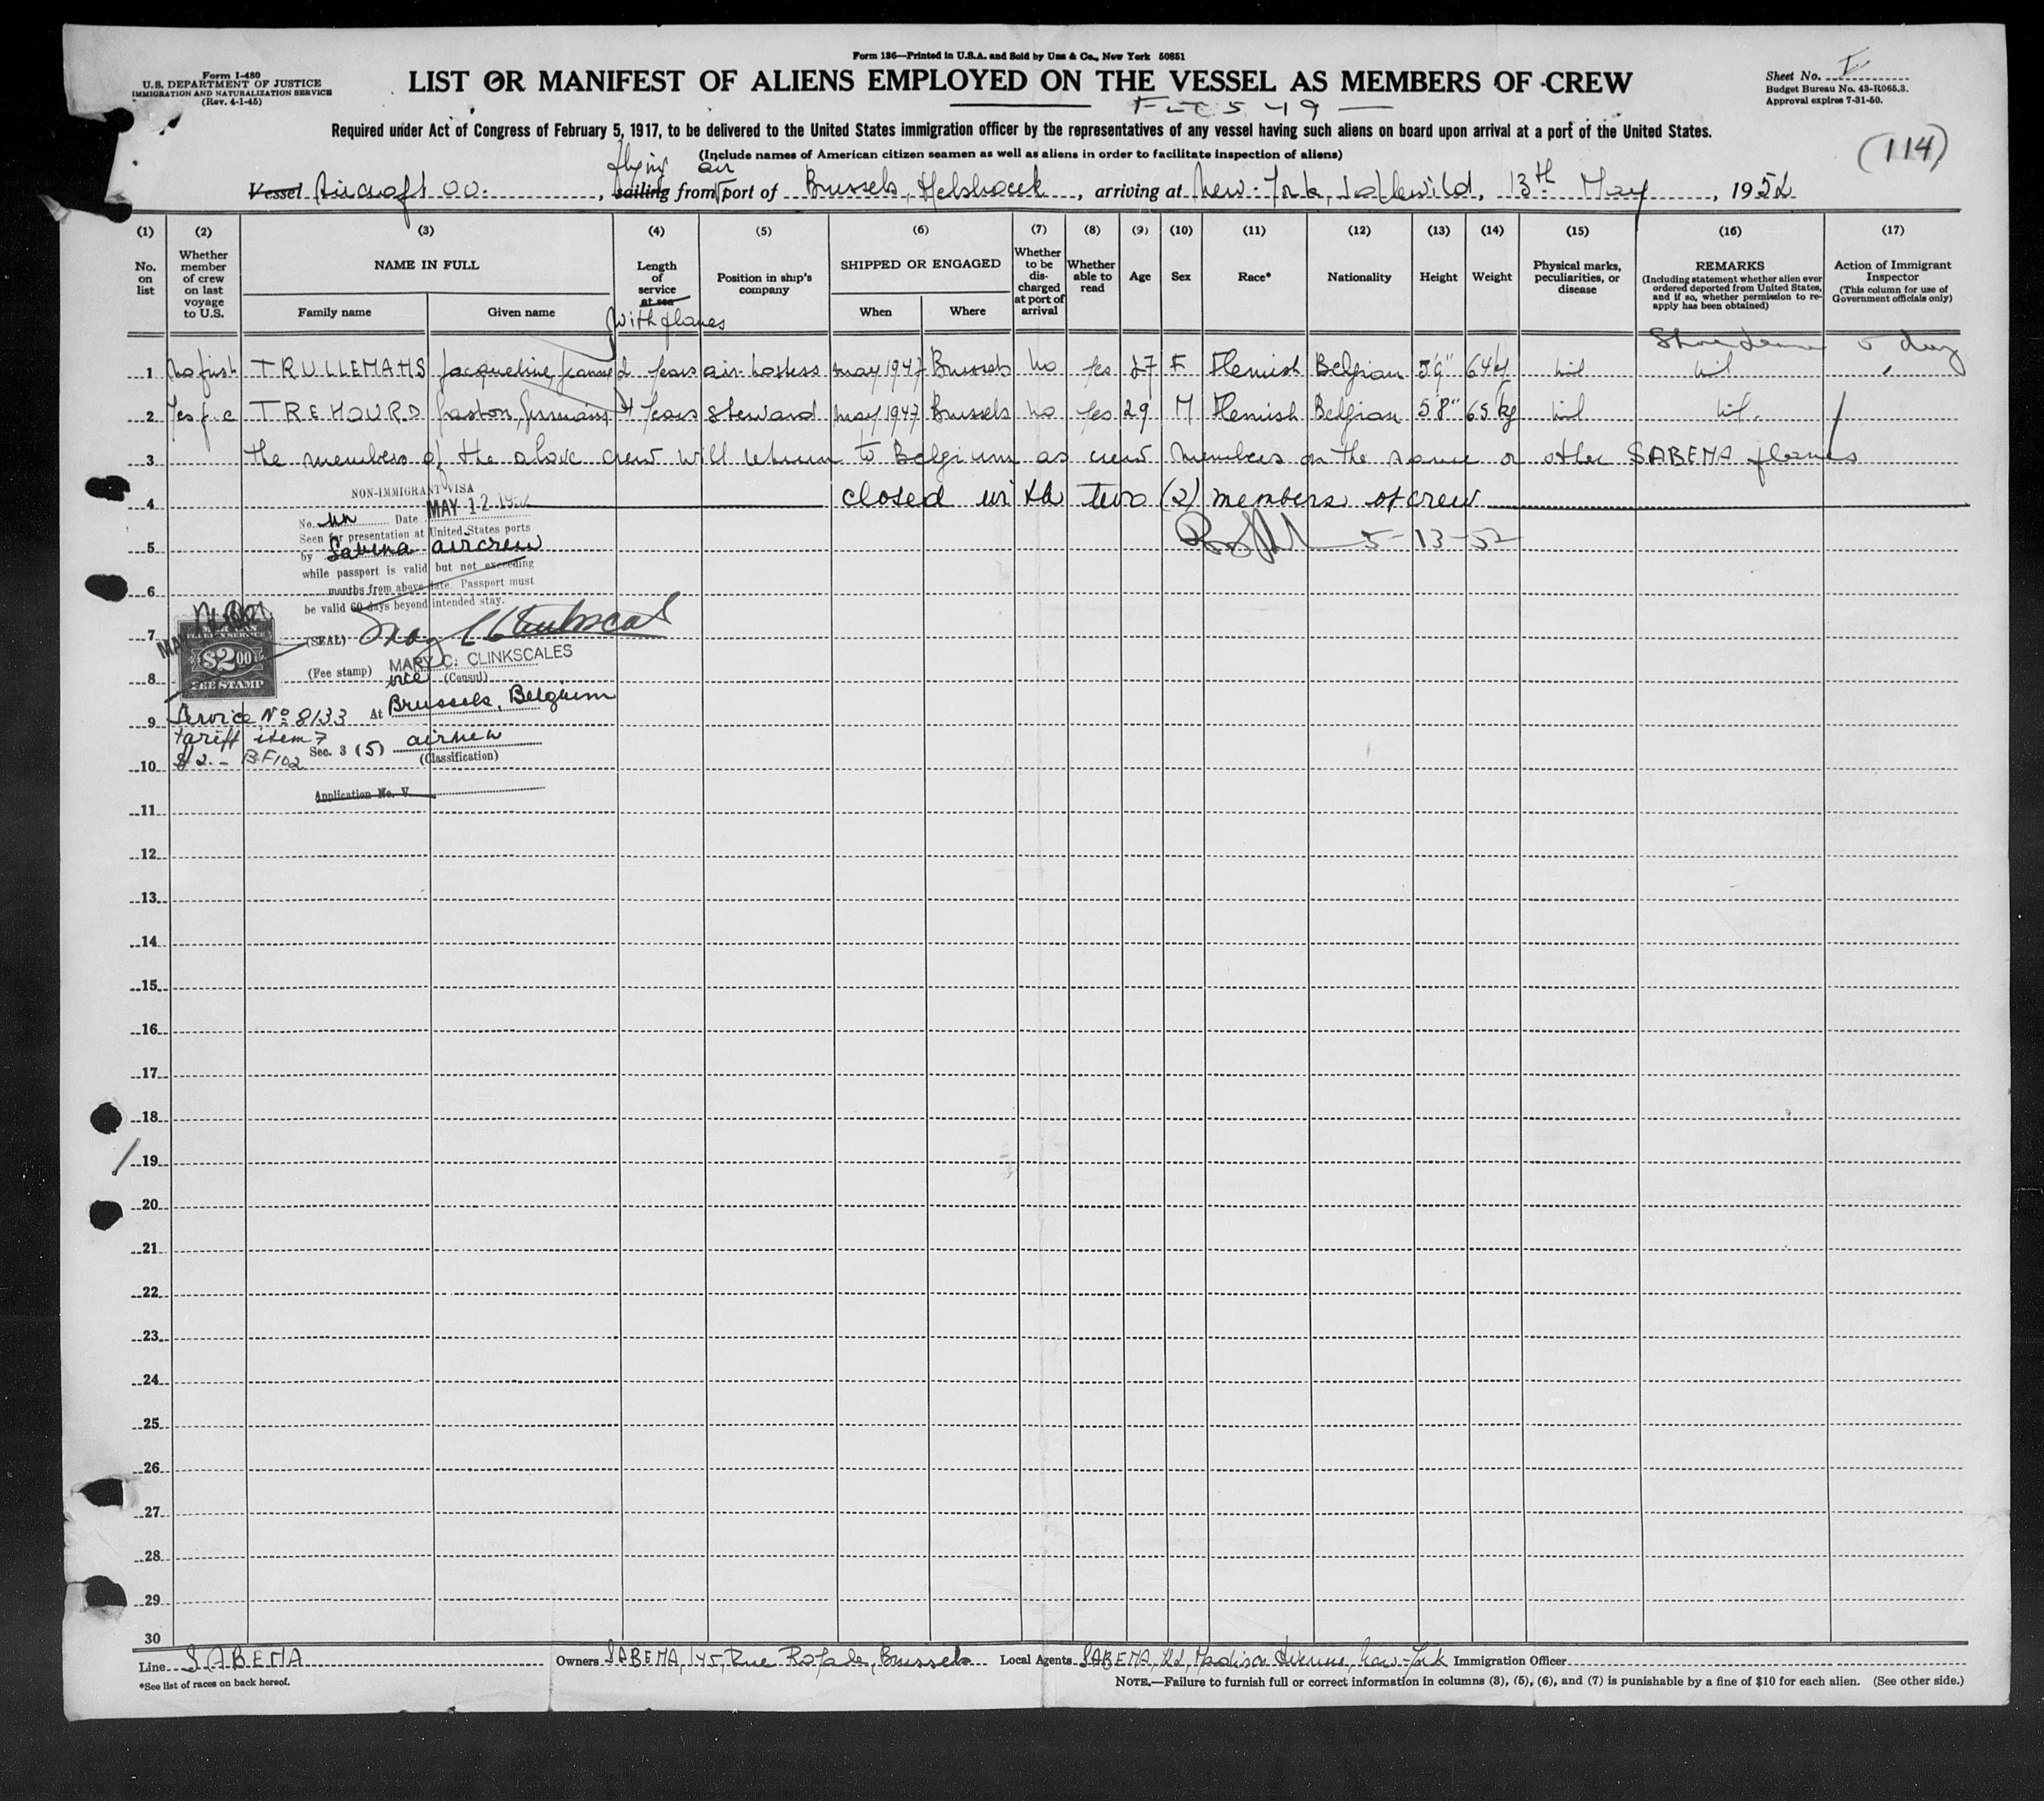 Form 136—Printed in U.S.A. and Sold by Unz & Co., New York 50851
Form I-480
U.S. DEPARTMENT OF JUSTICE
IMMIGRATION AND NATURALIZATION SERVICE
(Rev. 4-1-45)
LIST OR MANIFEST OF ALIENS EMPLOYED ON THE VESSEL AS MEMBERS OF CREW
Sheet No. I
Budget Bureau No. 43-R065.3.
Approval expires 7-31-50.
549
Required under Act of Congress of February 5, 1917, to be delivered to the United States immigration officer by the representatives of any vessel having such aliens on board upon arrival at a port of the United States.
(Include names of American citizen seamen as well as aliens in order to facilitate inspection of aliens)
(114)
flying air
Vessel Aircraft OO. , sailing from port of Brussels, , arriving at New-York, Idlewild, 13th May , 1952
(1) (2) (3) (4) (5) (6) (7) (8) (9) (10) (11) (12) (13) (14) (15) (16) (17)
No. on list
Whether member of crew on last voyage to U.S.
NAME IN FULL
Family name
Given name
Length of service at sea
with planes
Position in ship's company
SHIPPED OR ENGAGED
When
Where
Whether to be discharged at port of arrival
Whether able to read
Age
Sex
Race*
Nationality
Height
Weight
Physical marks, peculiarities, or disease
REMARKS
(Including statement whether alien ever ordered deported from United States, and if so, whether permission to reapply has been obtained)
Action of Immigrant Inspector
(This column for use of Government officials only)
1 No first TRULLEMANS Jacqueline, 2 years air-hostess may 1947 Brussels No yes 27 F Flemish Belgian 5'9" 64 nil nil
2 Yes TREMOURD Gaston, 4 years steward may 1947 Brussels No yes 29 M Flemish Belgian 5'8" 65 kg nil nil.
3 the members of the above crew will return to Belgium as crew members on the same or other SABENA planes
4 closed with two (2) members of crew
5-13-52
NON-IMMIGRANT VISA
No. Date MAY 12 1952
Seen for presentation at United States ports
by Sabena aircrew
while passport is valid but not exceeding
months from above date. Passport must
be valid 60 days beyond intended stay.
(SEAL)
MARY C. CLINKSCALES
(Fee stamp) vice (Consul)
$2.00
FEE STAMP
At Brussels, Belgium
Service No 8133
tariff item 7
$2.- BF102
Sec. 3 (5) aircrew
(Classification)
Application No. V
5
6
7
8
9
10
11
12
13
14
15
16
17
18
19
20
21
22
23
24
25
26
27
28
29
30
Line SABENA Owners SABENA, 145, Rue Royale, Brussels Local Agents SABENA, Madison Avenue, New-York Immigration Officer
*See list of races on back hereof.
NOTE.—Failure to furnish full or correct information in columns (3), (5), (6), and (7) is punishable by a fine of $10 for each alien. (See other side.)